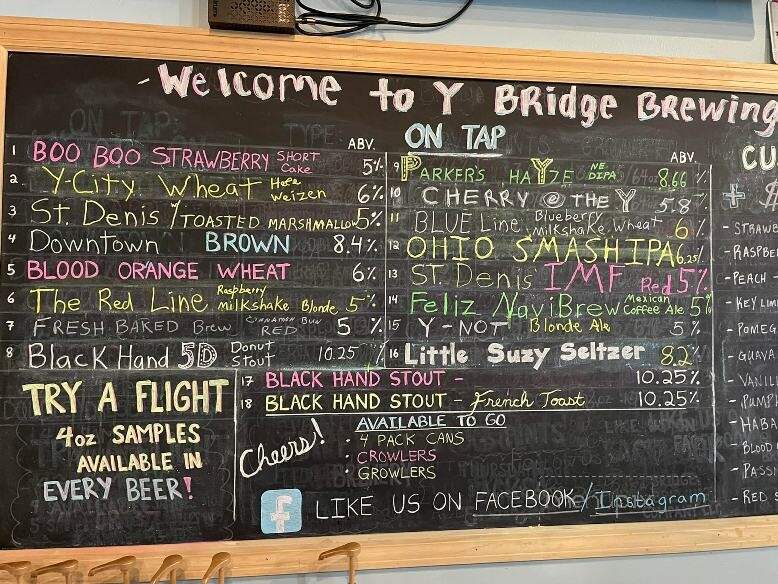 - Welcome to Y Bridge Brewing
ON TAP
ABV.
1 BOO BOO STRAWBERRY SHORT Cake 5%
2 Y-City Wheat Hefe Weizen 6%
3 St. Denis / TOASTED MARSHMALLOW 5%
4 Downtown BROWN 8.4%
5 BLOOD ORANGE WHEAT 6%
6 The Red Line Raspberry Milkshake Blonde 5%
7 FRESH BAKED Brew CINNAMON BUN RED 5%
8 Black Hand 5D Donut Stout 10.25%
ABV.
9 PARKER'S HAYZE NE DIPA 8.66%
10 CHERRY @ THE Y 5.8%
11 BLUE Line Blueberry Milkshake Wheat 6%
12 OHIO SMASH IPA 6.25%
13 ST. Denis IMF Red 5%
14 Feliz NaviBrew Mexican Coffee Ale 5%
15 Y-NOT Blonde Ale 5%
16 Little Suzy Seltzer 8.2%
17 BLACK HAND STOUT - 10.25%
18 BLACK HAND STOUT - French Toast 10.25%
TRY A FLIGHT
4oz SAMPLES
AVAILABLE IN
EVERY BEER!
Cheers!
AVAILABLE TO GO
· 4 PACK CANS
· CROWLERS
· GROWLERS
f LIKE US ON FACEBOOK / Instagram
CU
+ $
- STRAWB
- RASPBE
- PEACH -
- KEY LIM
- POMEG
- GUAVA
- VANILL
- PUMPK
- HABA
- BLOOD
- PASSI
- RED S